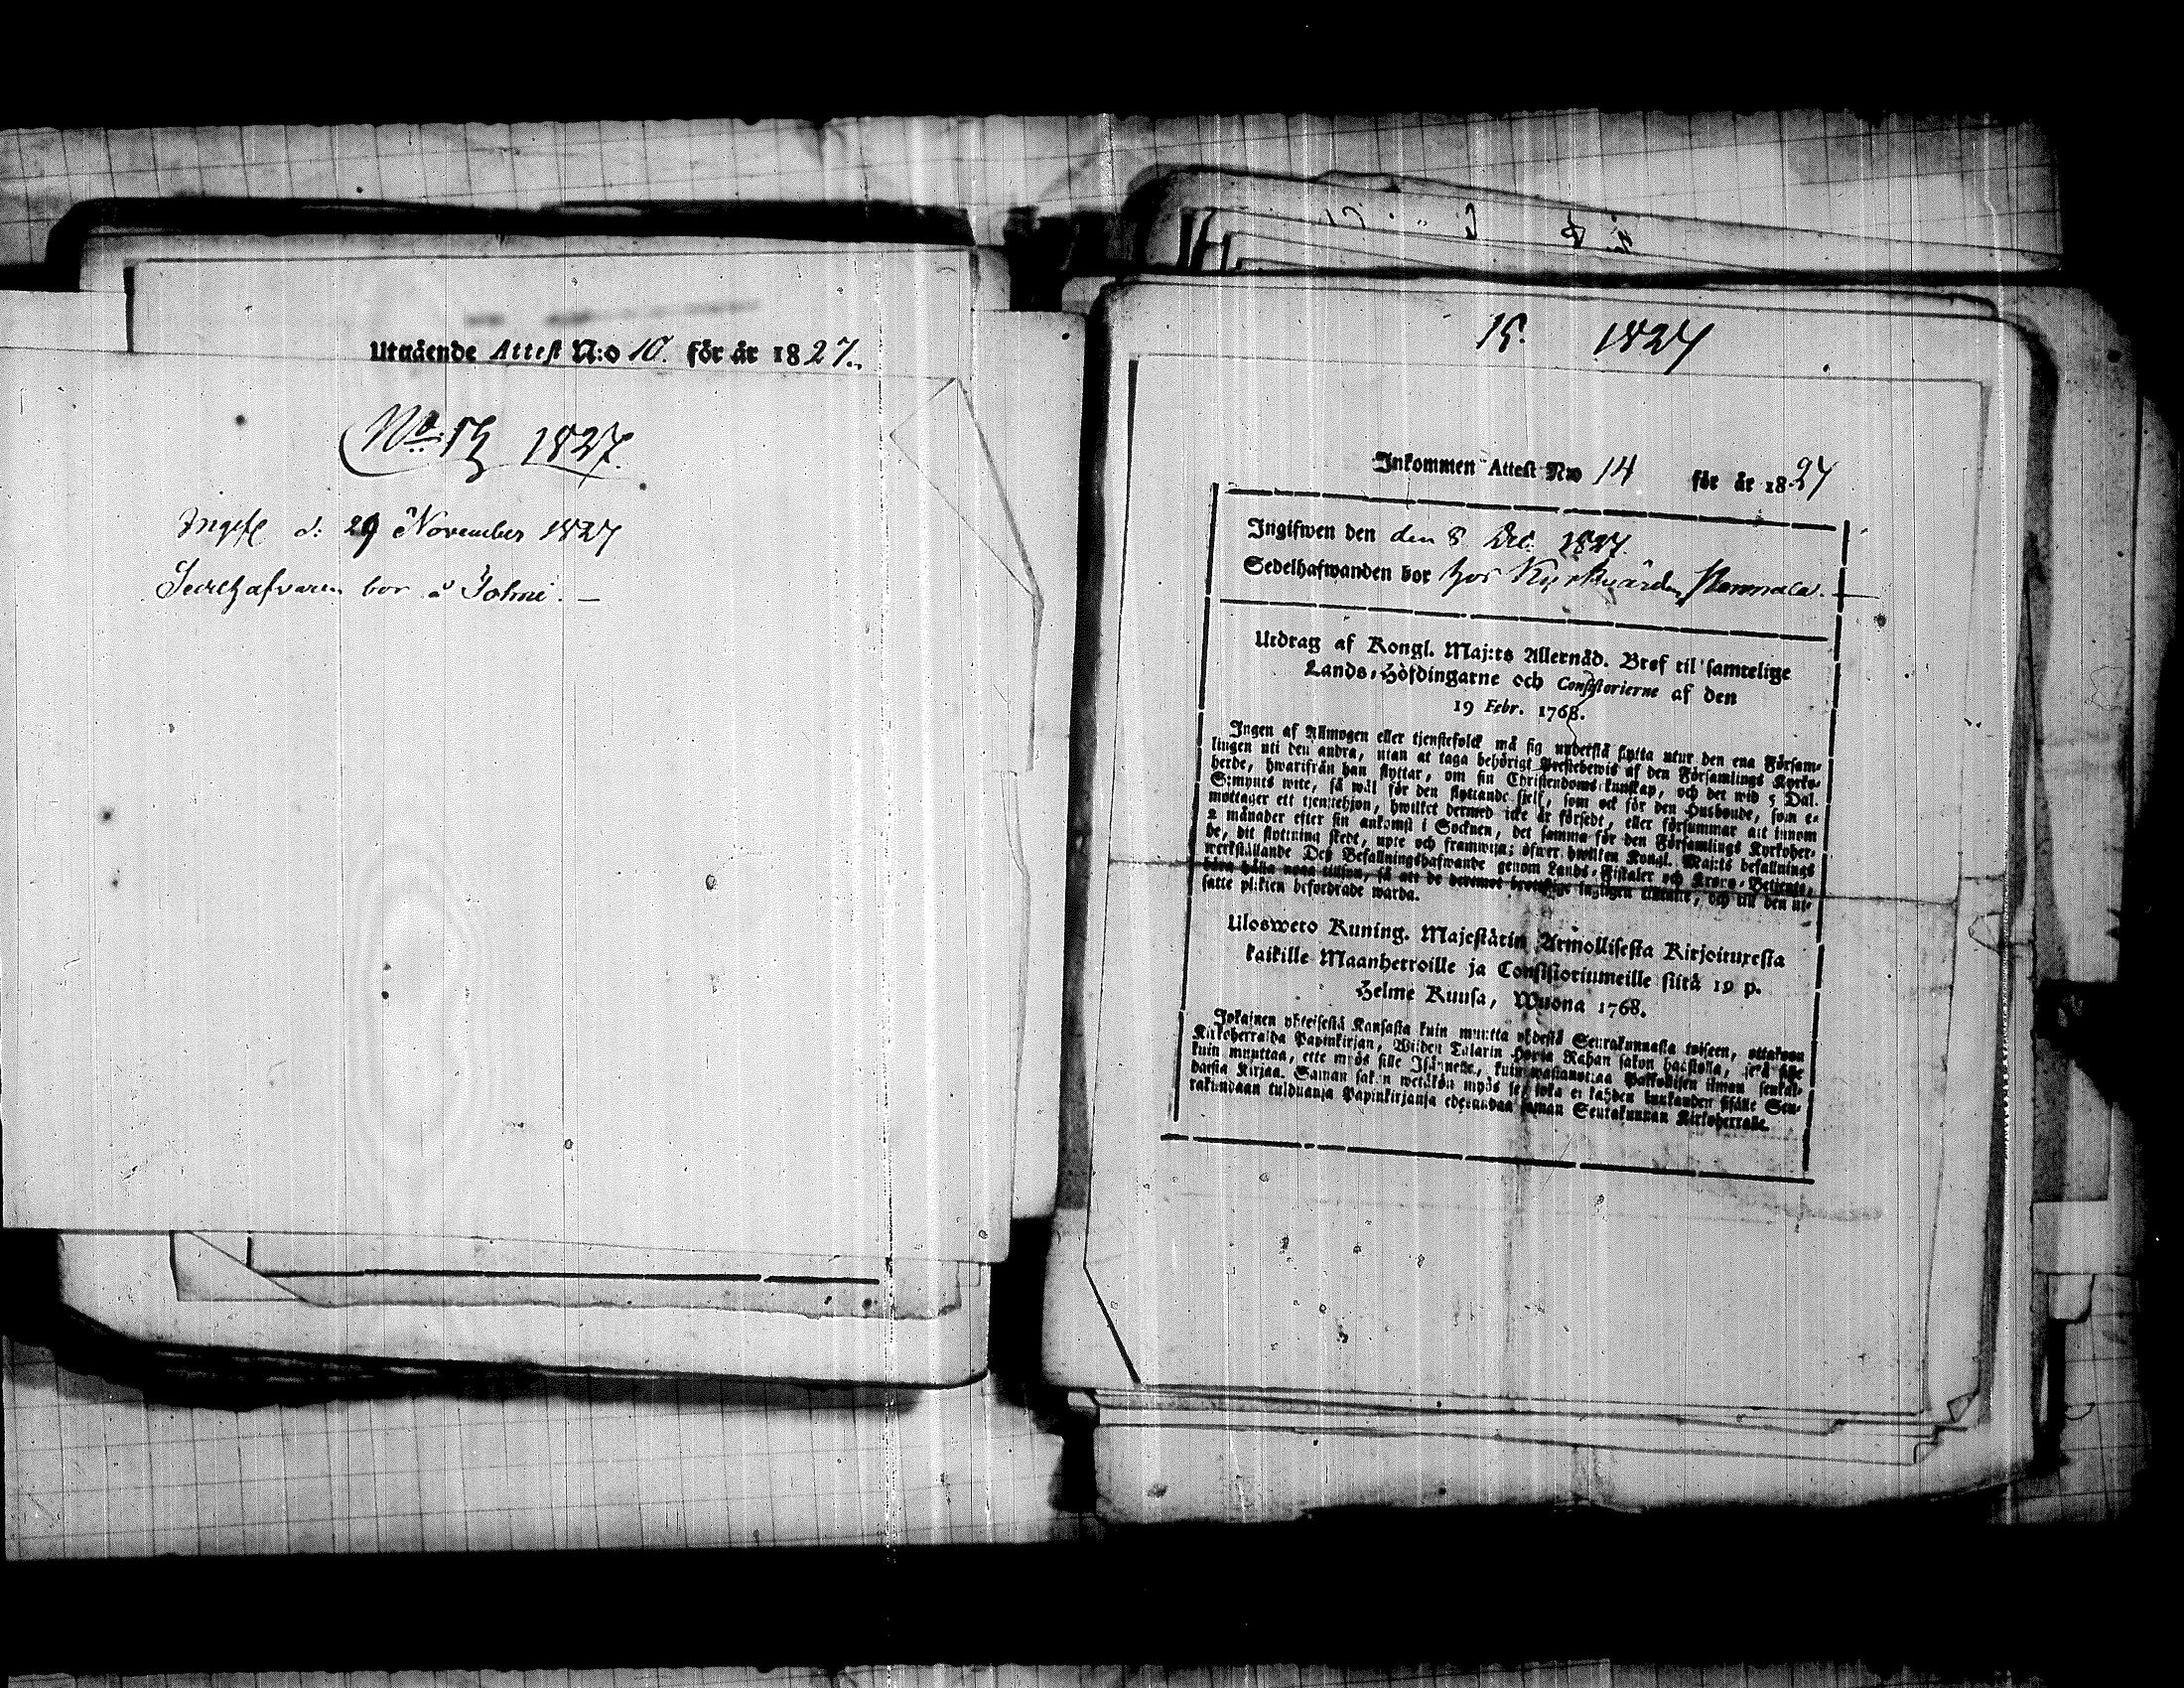 Utgående Attest N:o 10. för år 1827.
No. 15 1827.
d: 29 November 1827
bor å
15. 1827
Inkommen Attest N:o 14 för år 1827
Ingifwen den den 8 Dec. 1827.
Sedelhafwanden bor hos Kyrkvärden
Utdrag af Kongl. Maj:ts Allernåd. Bref til samtelige
Lands-Höfdingarne och Consistorierne af den
19 Febr. 1768.
Ingen af Allmogen eller tjenstefolck må sig understå flytta utur den ena Försam-
lingen uti den andra, utan at taga behörigt Prestebewis af den Församlings Kyrko-
herde, hwarifrån han flyttar, om sin Christendoms kunskap, och det wid 5 Dal.
S:mynts wite, så wäl för den flyttande sjelf, som ock för den Husbonde, som e-
mottager ett tjenstehjon, hwilket dermed icke är försedt, eller försummar att innom
2 månader efter sin ankomst i Socknen, det samma för den Församlings Kyrkoher-
de, dit flyttning skedt, upte och framwisa; öfwer hwilken Kongl. Maj:ts befallnings
werkställande Des Befallningshafwande genom Lands-Fiskaler och Krono-Betjente,
böra hålla noga tillsyn, så att de deremot brottslige lagligen tilltalte, och till den ut-
satte plikten befordrade warda.
Ulosweto Kuning. Majestätin Armollisesta Kirjoituxesta
kaikille Maanherroille ja Consistoriumeille siitä 19 p.
Helme Kuusa, Wuona 1768.
Jokainen yhteisestä Kansasta kuin muutta yhdestä Seurakunnasta toiseen, ottakoon
Kirkoherralda Papinkirjan, Wiiden Talarin Hopia Rahan sakon haastolla, sekä sille
kuin muuttaa, ette myös sille Isännelle, kuin wastanottaa Palkollisen ilman senkal-
daista Kirjaa. Saman sakon wetäkön myös se, joka ei kahden kuukauden sisälle Seu-
rakundaan tulduansa Papinkirjansa edesandaa saman Seurakunnan Kirkoherralle.